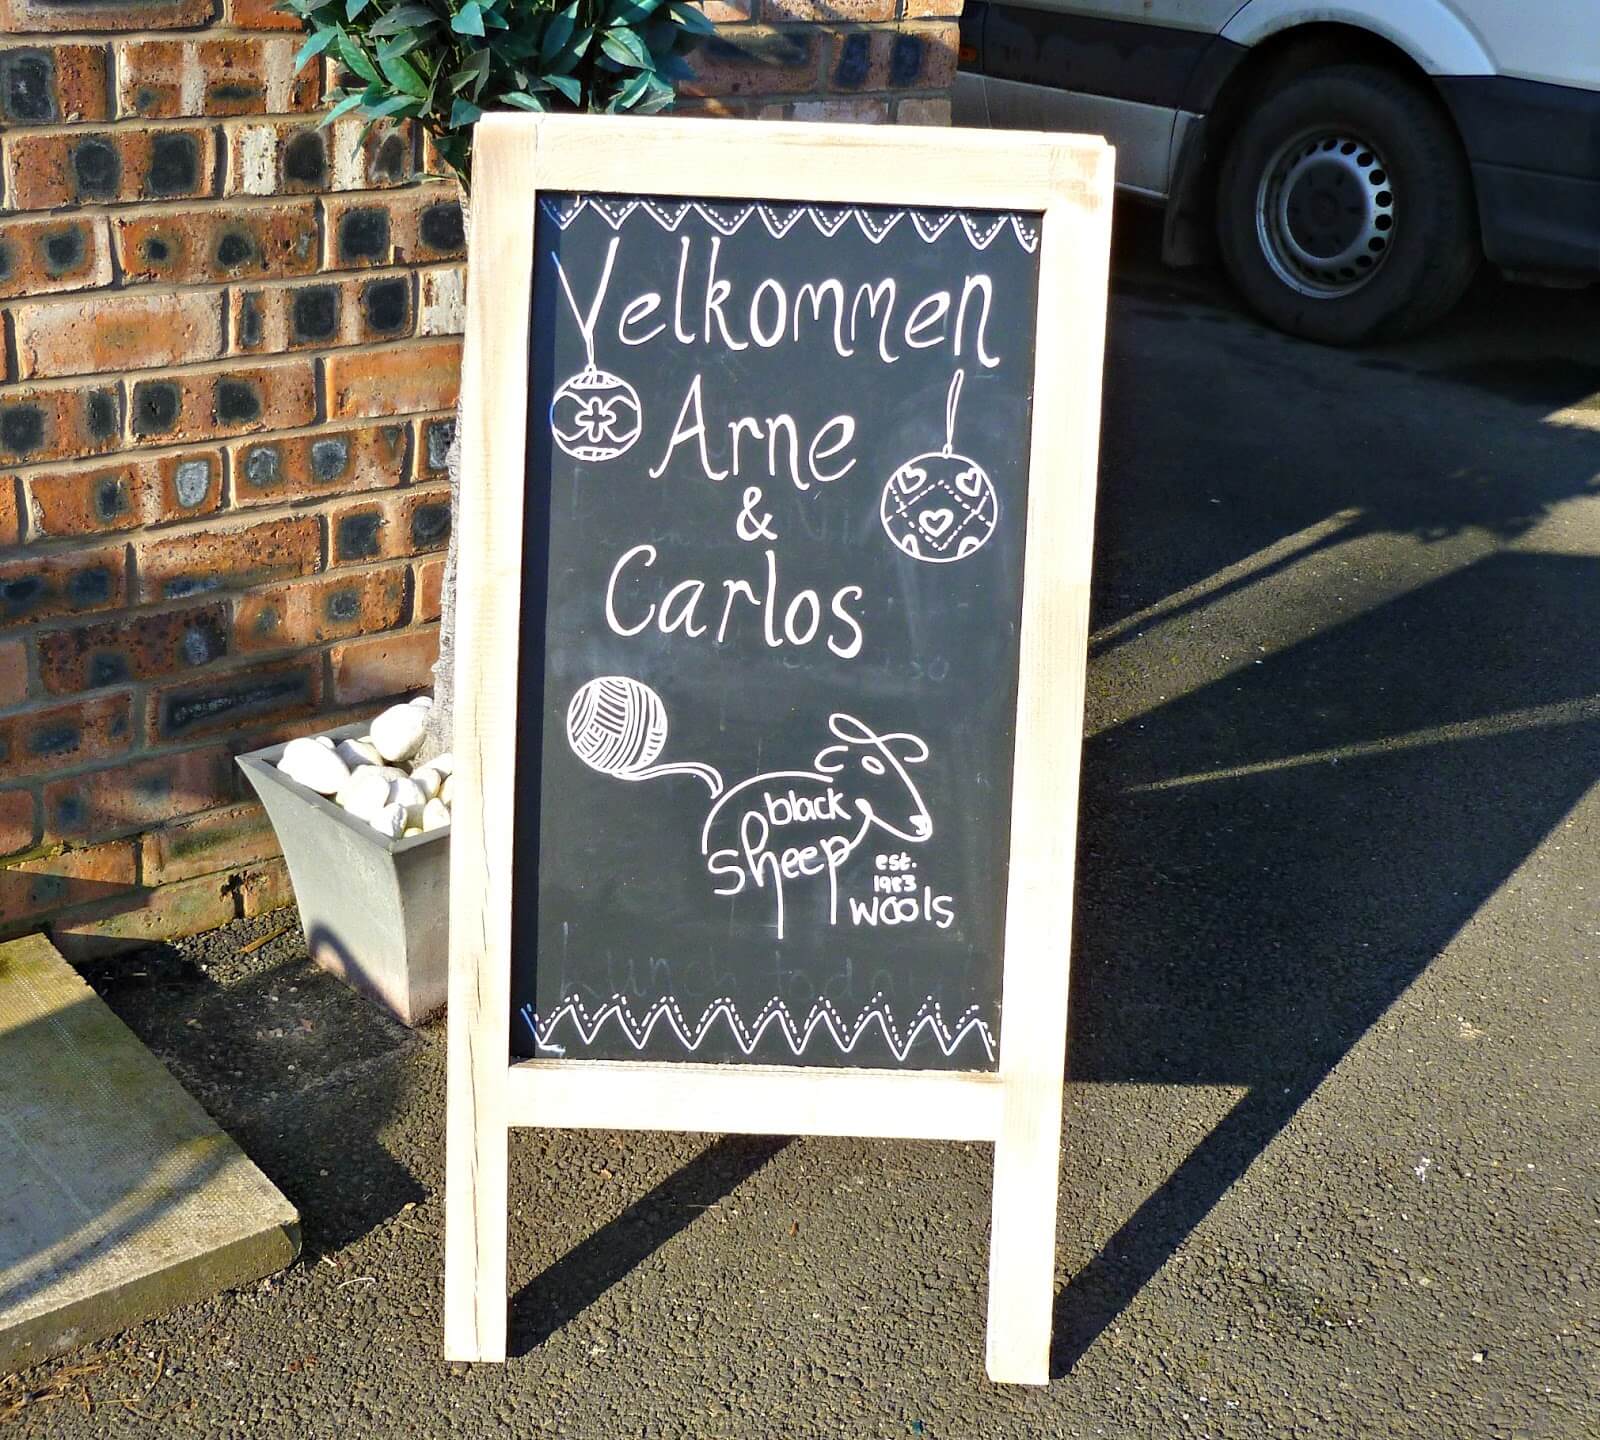 Velkommen
Arne
&
Carlos
black
sheep
est.
1983
wools
Lunch today